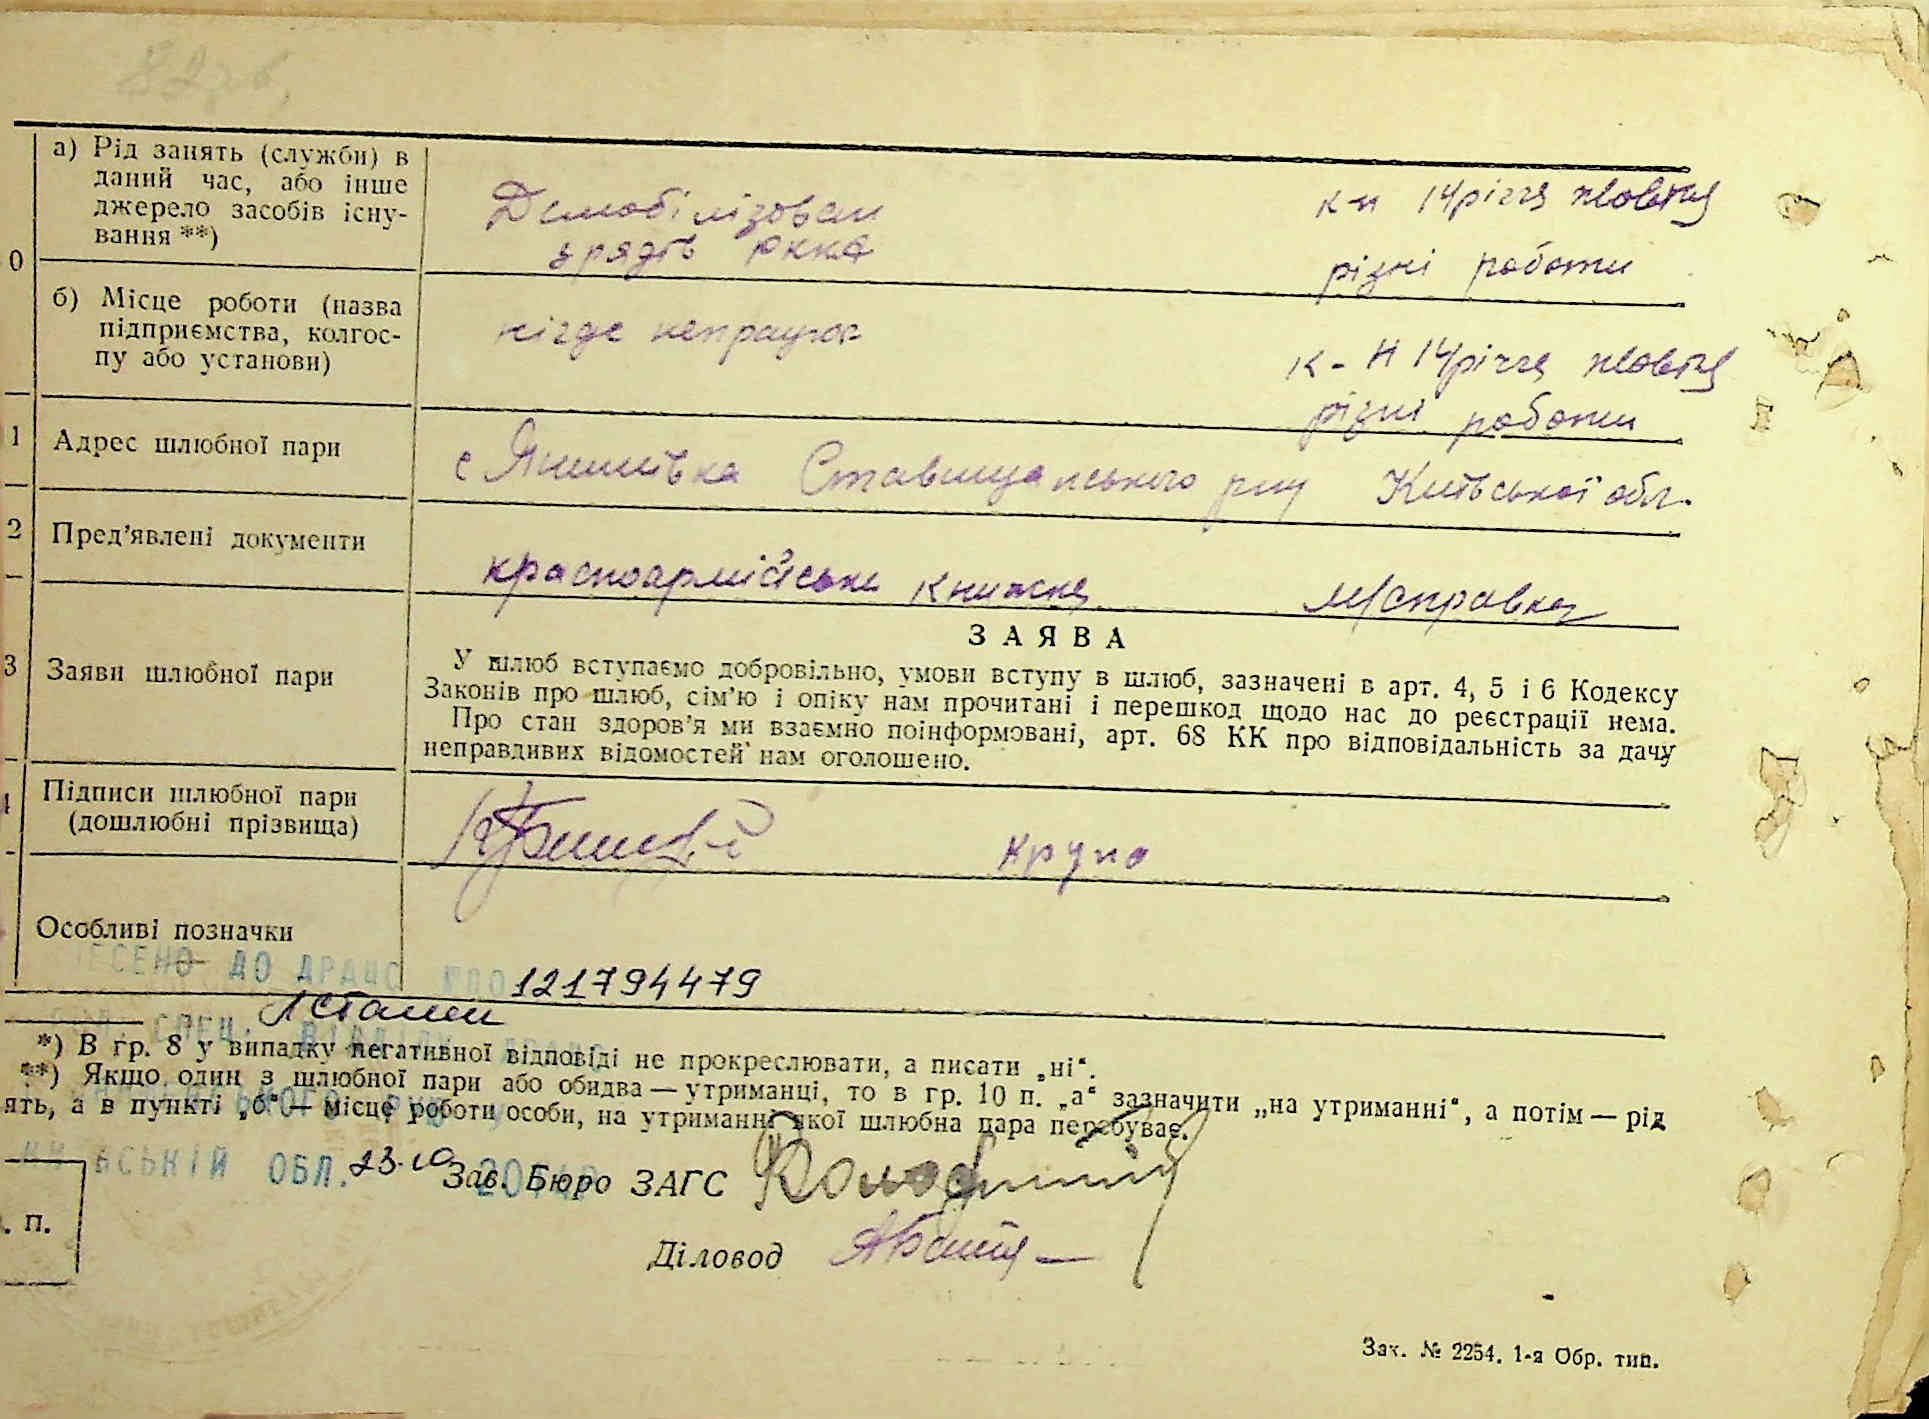 82зв
а) Рід занять (служби) в
даний час, або інше
джерело засобів існу-
вання **)
Демобілізован
зрядів РККА
к-п 14річчя жовтня
різні роботи
0
б) Місце роботи (назва
підприємства, колгос-
пу або установи)
нігде непрацює
к-п 14річчя жовтня
різні роботи
1
Адрес шлюбної пари
с Янишівка Ставищанського р-ну Київської обл.
2
Пред’явлені документи
красноармійська книжка
м/справка
3
Заяви шлюбної пари
ЗАЯВА
У шлюб вступаємо добровільно, умови вступу в шлюб, зазначені в арт. 4, 5 і 6 Кодексу
Законів про шлюб, сім’ю і опіку нам прочитані і перешкод щодо нас до реєстрації нема.
Про стан здоров’я ми взаємно поінформовані, арт. 68 КК про відповідальність за дачу
неправдивих відомостей нам оголошено.
Підписи шлюбної пари
(дошлюбні прізвища)
Крупа
Особливі позначки
ЕСЕНО ДО ДРАЦС
121794479
*) В гр. 8 у випадку негативної відповіді не прокреслювати, а писати „ні“.
**) Якщо один з шлюбної пари або обидва — утриманці, то в гр. 10 п. „а“ зазначити „на утриманні“, а потім — рід
ять, а в пункті „б“ — місце роботи особи, на утриманні якої шлюбна пара перебуває.
ОБЛ. 23.10
Зав. Бюро ЗАГС
. п.
Діловод
Зак. № 2254. 1-а Обр. тип.